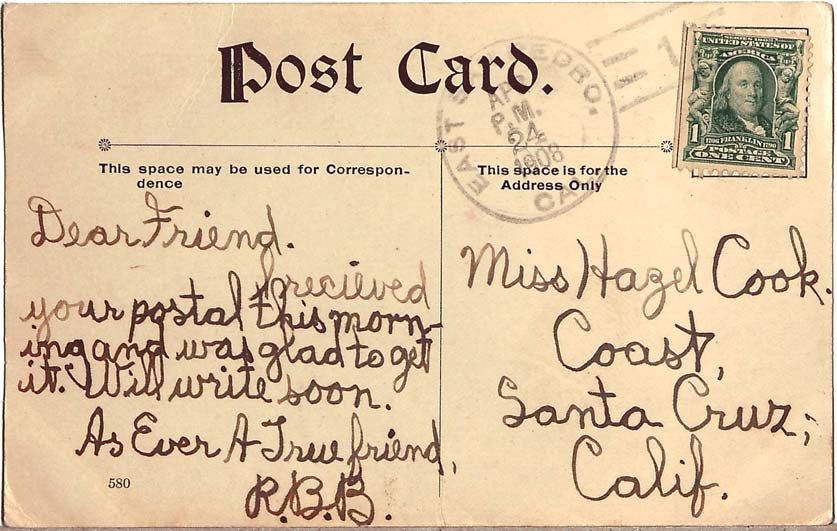 Post Card.
EAST SAN PEDRO. CAL.
APR
P.M.
24
1908
1
SERIES 1902
UNITED STATES OF
AMERICA
1706 FRANKLIN 1790
POSTAGE
1 ONE CENT 1
This space may be used for Correspon-
dence
This space is for the
Address Only
Dear Friend.
I recieved
your postal this morn-
ing and was glad to get
it. Will write soon.
As Ever A True friend,
R.B.B.
580
Miss Hazel Cook.
Coast,
Santa Cruz,
Calif.